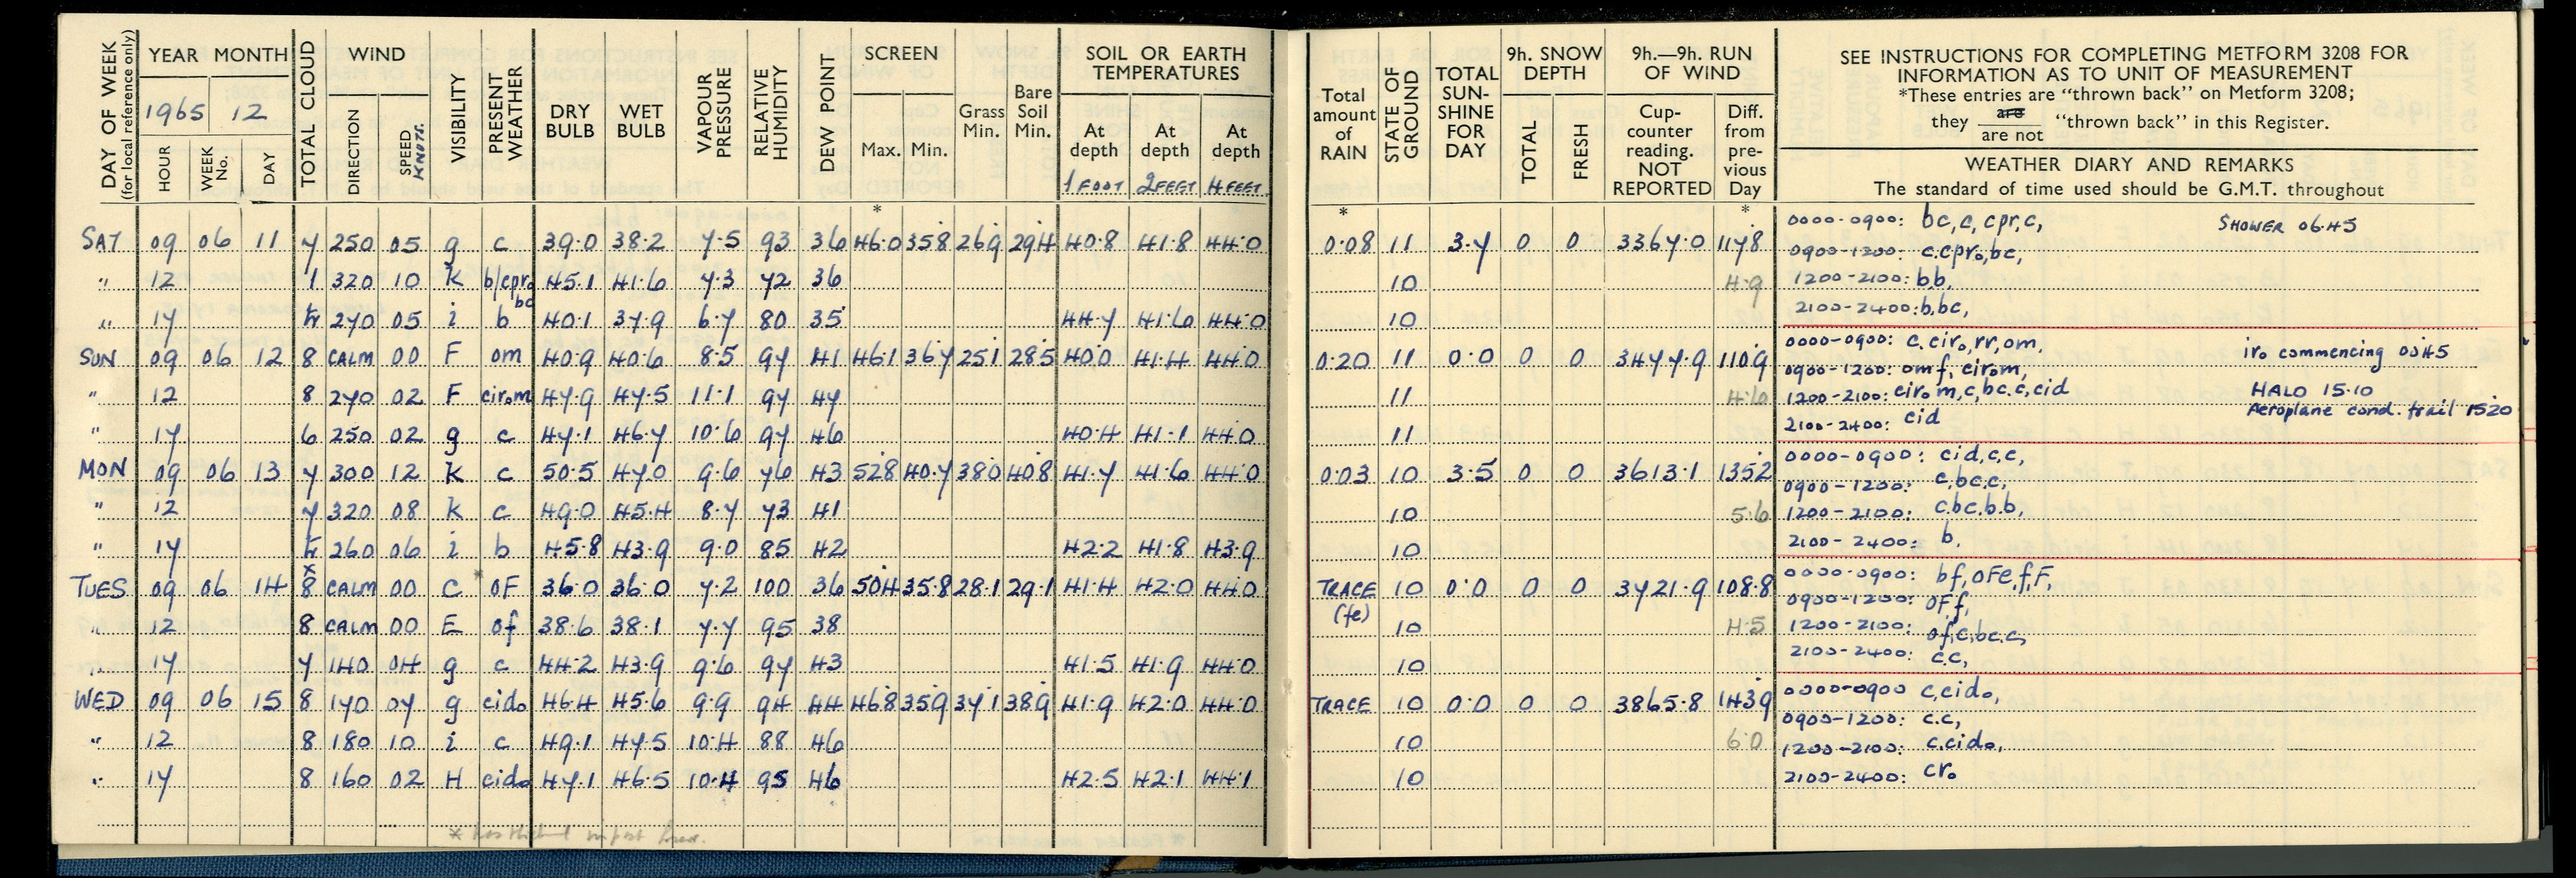 DAY OF WEEK (for local reference only)
YEAR MONTH
1965 12
HOUR WEEK No. DAY
TOTAL CLOUD
WIND
DIRECTION SPEED KNOTS.
VISIBILITY
PRESENT WEATHER
DRY BULB
WET BULB
VAPOUR PRESSURE
RELATIVE HUMIDITY
DEW POINT
SCREEN
Max. Min.
Grass Min.
Bare Soil Min.
SOIL OR EARTH TEMPERATURES
At depth 1 FOOT
At depth 2 FEET
At depth 4 FEET.
Total amount of RAIN
STATE OF GROUND
TOTAL SUN-SHINE FOR DAY
9h. SNOW DEPTH
TOTAL FRESH
9h.—9h. RUN OF WIND
Cup-counter reading. NOT REPORTED
Diff. from pre-vious Day
SEE INSTRUCTIONS FOR COMPLETING METFORM 3208 FOR
INFORMATION AS TO UNIT OF MEASUREMENT
*These entries are "thrown back" on Metform 3208;
they are / are not "thrown back" in this Register.
WEATHER DIARY AND REMARKS
The standard of time used should be G.M.T. throughout
* * *
SAT 09 06 11 7 250 05 g c 39.0 38.2 7.5 93 36 46.0 35.8 26.9 29.4 40.8 41.8 44.0 0.08 11 3.7 0 0 3367.0 117.8
0000-0900: bc,c,cpr,c, SHOWER 0645
0900-1200: c.cpr₀,bc,
" 12 1 320 10 K b/cpr₀ bc 45.1 41.6 7.3 72 36 10 4.9
1200-2100: b.b,
" 17 tr 270 05 i b 40.1 37.9 6.7 80 35 44.7 41.6 44.0 10
2100-2400: b,bc,
SUN 09 06 12 8 CALM 00 F om 40.9 40.6 8.5 97 41 46.1 36.7 25.1 28.5 40.0 41.4 44.0 0.20 11 0.0 0 0 3477.9 110.9
0000-0900: c.cir₀,rr,om, ir₀ commencing 0045
0900-1200: omf, cir₀m,
" 12 8 270 02 F cir₀m 47.9 47.5 11.1 97 47 11 4.6
1200-2100: cir₀m,c,bc.c,cid HALO 15.10
Aeroplane cond. trail 1520
" 17 6 250 02 g c 47.1 46.7 10.6 97 46 40.4 41.1 44.0 11
2100-2400: cid
MON 09 06 13 7 300 12 K c 50.5 47.0 9.6 76 43 52.8 40.7 38.0 40.8 41.7 41.6 44.0 0.03 10 3.5 0 0 3613.1 135.2
0000-0900: cid,c.c,
0900-1200: c,bc.c,
" 12 7 320 08 K c 49.0 45.4 8.7 73 41 10 5.6
1200-2100: c.bc.b.b,
" 17 tr 260 06 i b 45.8 43.9 9.0 85 42 42.2 41.8 43.9 10
2100-2400: b.
TUES 09 06 14 x 8 CALM 00 C * OF 36.0 36.0 7.2 100 36 50.4 35.8 28.1 29.1 41.4 42.0 44.0 TRACE (fe) 10 0.0 0 0 3721.9 108.8
0000-0900: bf,OFe,f,F,
0900-1200: OFf,
" 12 8 CALM 00 E of 38.6 38.1 7.7 95 38 10 4.5
1200-2100: of,c,bc.c,
" 17 7 140 04 g c 44.2 43.9 9.6 97 43 41.5 41.9 44.0 10
2100-2400: c.c,
WED 09 06 15 8 170 07 g cid₀ 46.4 45.6 9.9 94 44 46.8 35.9 34.1 38.9 41.9 42.0 44.0 TRACE 10 0.0 0 0 3865.8 143.9
0000-0900 c,cid₀,
0900-1200: c.c,
" 12 8 180 10 i c 49.1 47.5 10.4 88 46 10 6.0
1200-2100: c.cid₀,
" 17 8 160 02 H cid₀ 47.1 46.5 10.4 95 46 42.5 42.1 44.1 10
2100-2400: cr₀